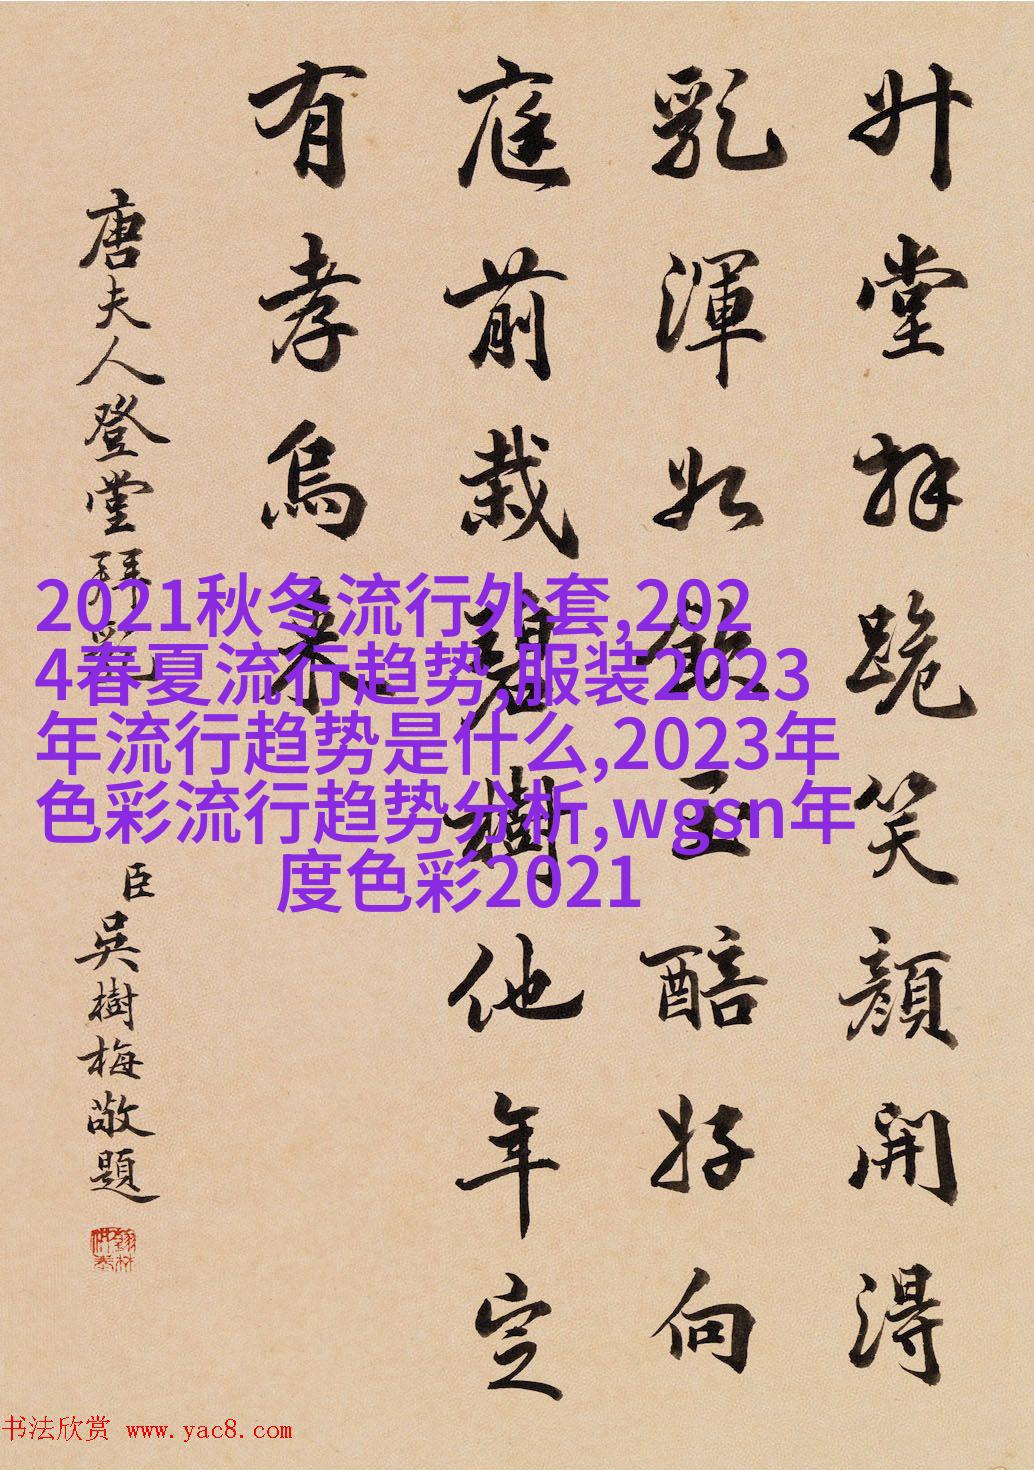 升堂拜跪笑顏開得
乳渾如飲玉醅好向
庭前栽碧樹他年定
有孝烏來
唐夫人登堂拜乳
臣吳樹梅敬題
2021秋冬流行外套,202
4春夏流行趋势,服装2023
年流行趋势是什么,2023年
色彩流行趋势分析,wgsn年
度色彩2021
书法欣赏 www.yac8.com